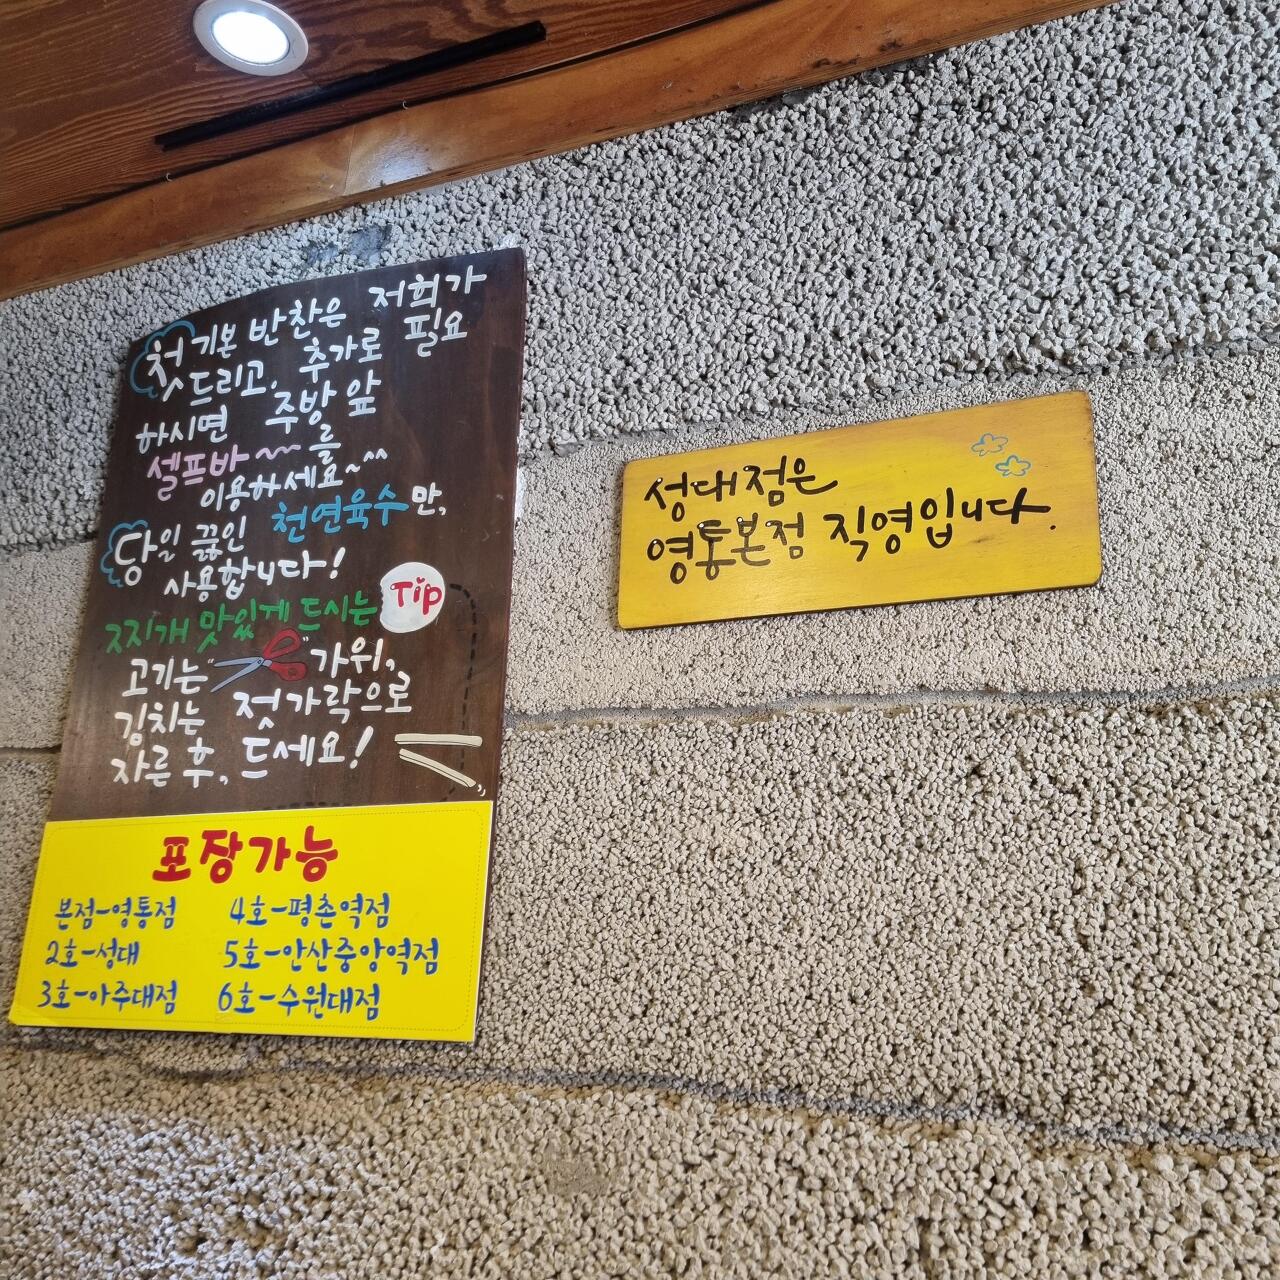 첫 기본 반찬은 저희가
드리고, 추가로 필요
하시면 주방 앞
셀프바~~를
이용하세요~^^
당일 끓인 천연육수만,
사용합니다!
찌개 맛있게 드시는 Tip
고기는 "가위",
김치는 젓가락으로
자른 후, 드세요!
포장가능
본점-영통점 4호-평촌역점
2호-성대 5호-안산중앙역점
3호-아주대점 6호-수원대점
성대점은
영통본점 직영입니다.